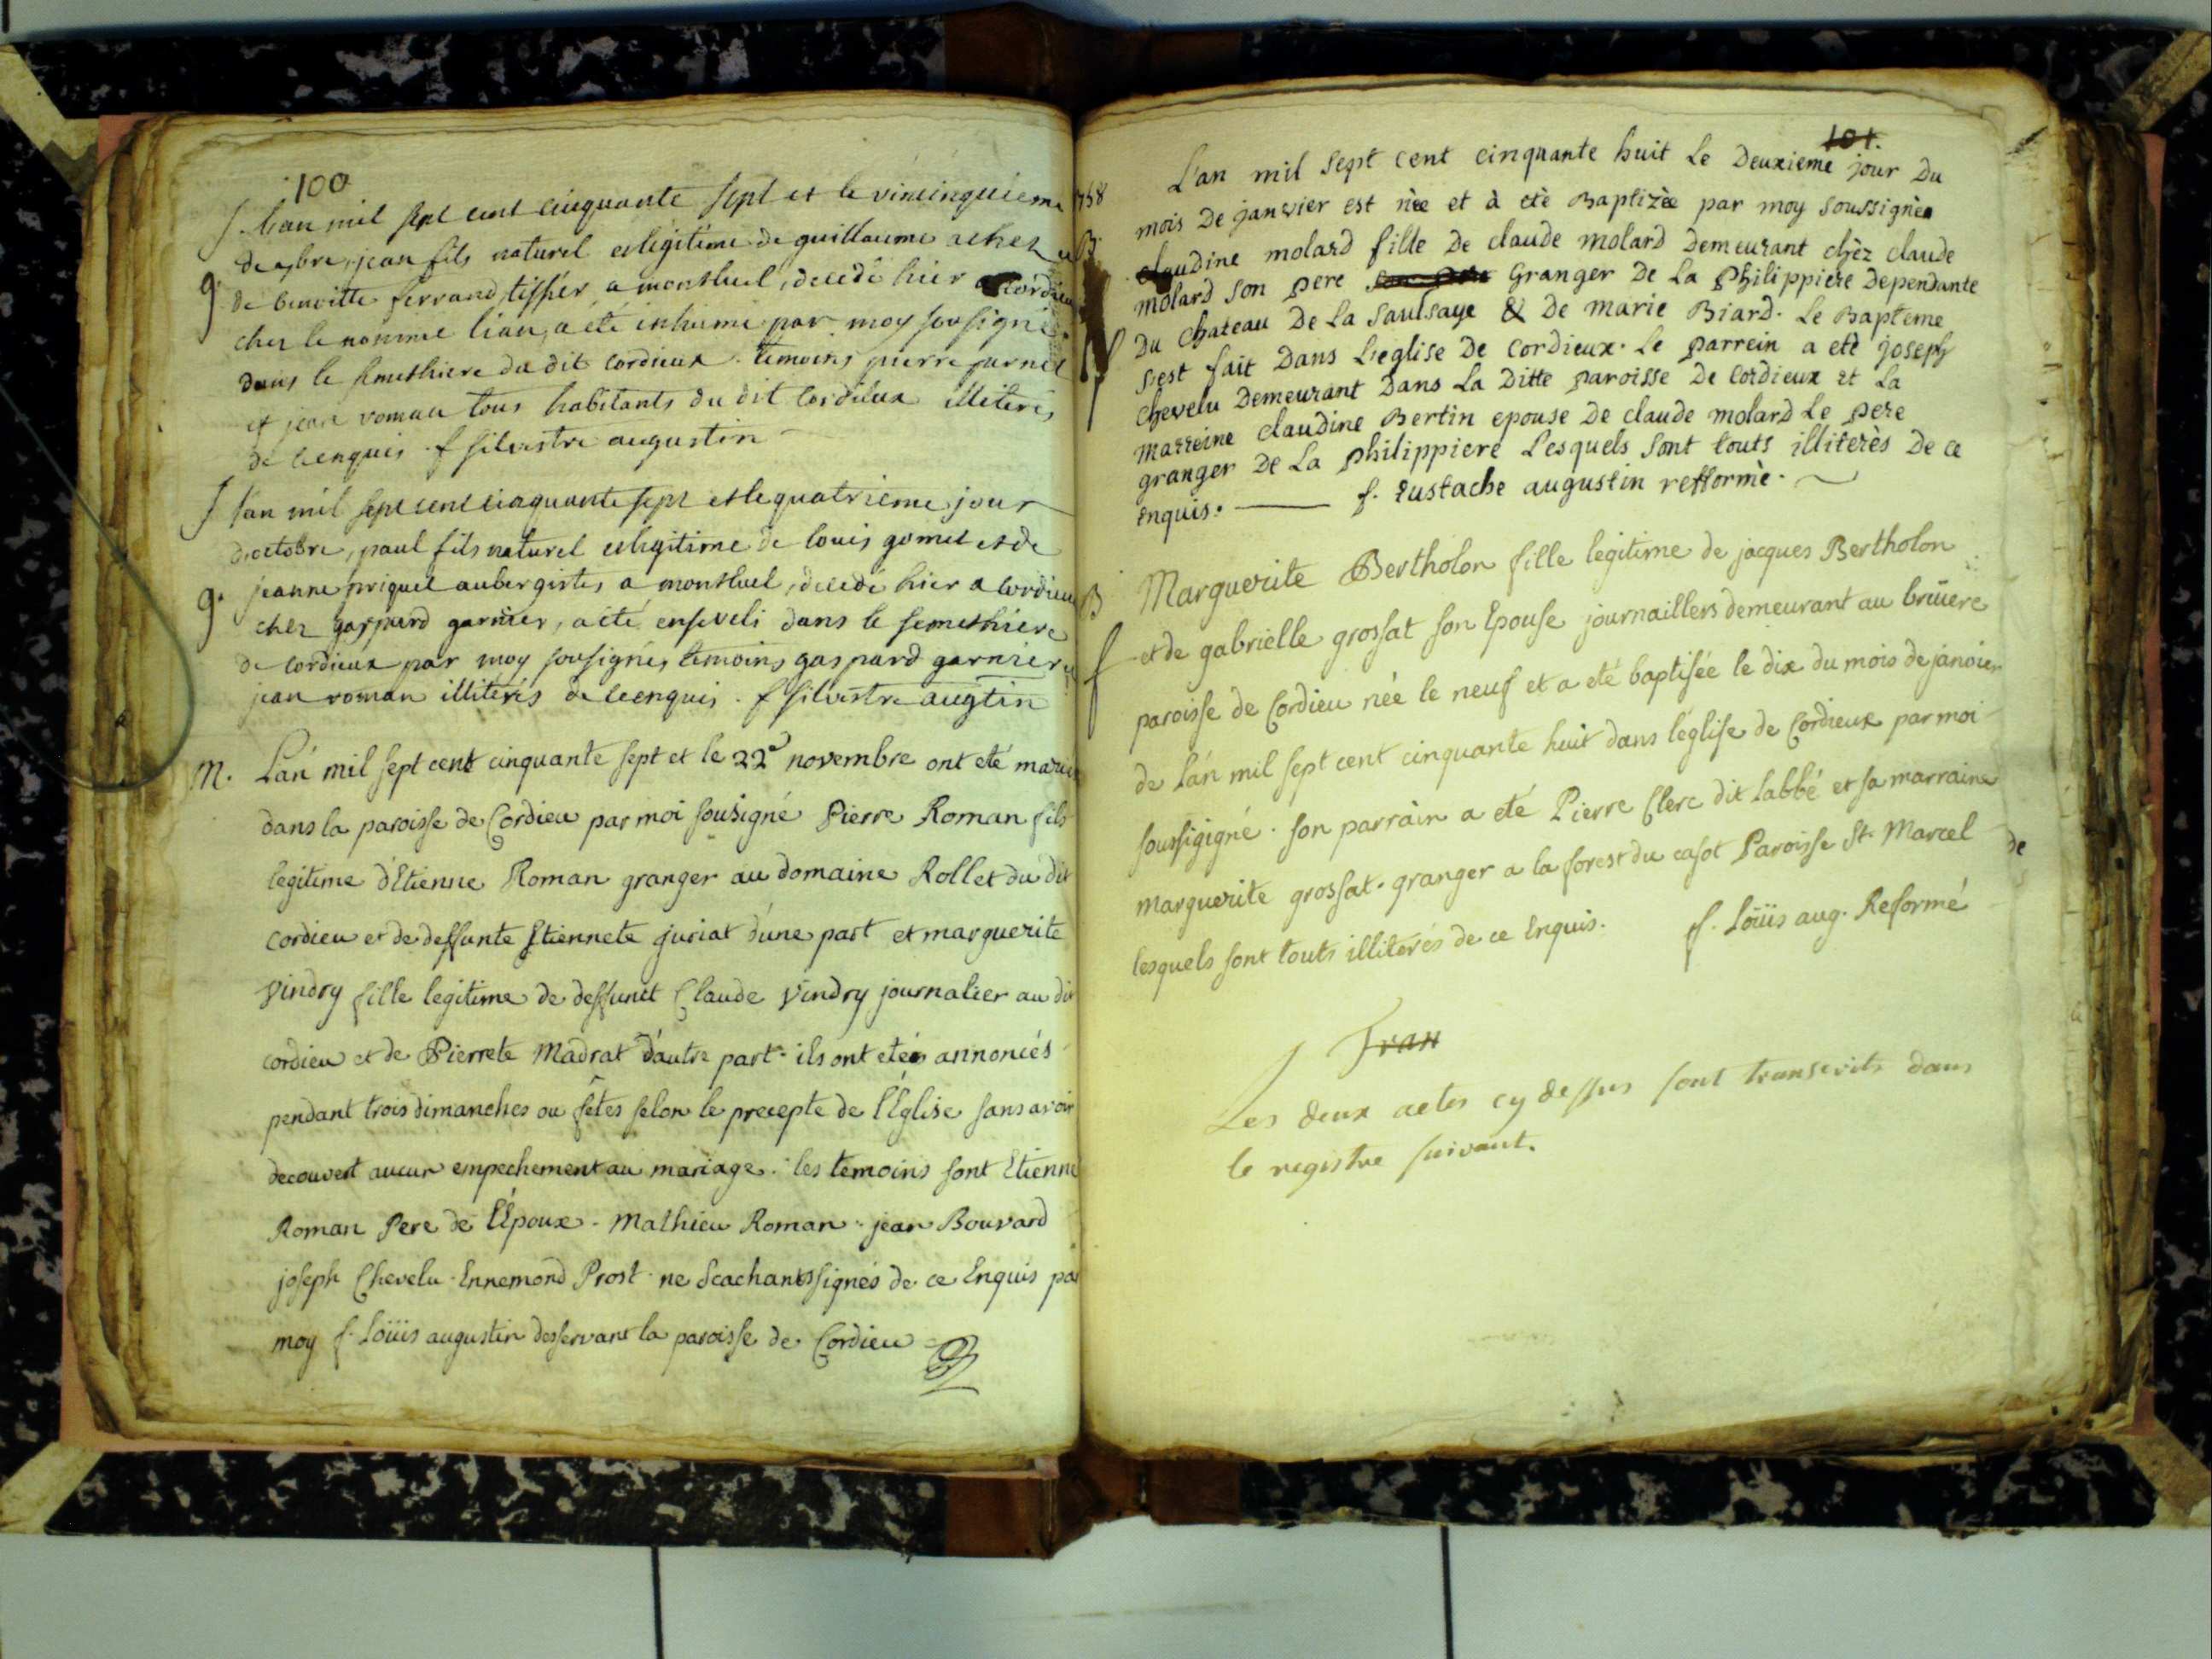 100
J. L'an mil sept cent cinquante sept et le vincinquieme
de 7bre, jean fils naturel et legitime de guillaume achez
g. de benoitte ferrand, tissier a montluel, decedé hier a cordieu
chez le nommé lian, a eté inhumé par moy sousigné
dans le semethiere du dit cordieux. temoins pierre
et jean roman tous habitants du dit Cordieux illiteres
de ce enquis. f silvestre augustin
J L'an mil sept cent cinquante sept et le quatrieme jour
d'octobre, paul fils naturel et legitime de louis gomet et de
g. jeanne priquet aubergistes a montluel, decedé hier a Cordieu
chez gaspard garnier, a eté enseveli dans le semethiere
de cordieux par moy sousigné, temoins gaspard garnier et
jean roman illiterés de ce enquis. f silvestre augtin
M. L'an mil sept cent cinquante sept et le 22e novembre ont eté mariés
dans la paroisse de Cordieu par moi sousigné Pierre Roman fils
legitime d'Etienne Roman granger au domaine Rollet du dit
cordieu et de deffunte Etiennete juriat d'une part et marguerite
Vindry fille legitime de deffunct Claude Vindry journalier au dit
cordieu et de Pierrete Madrat d'autre part. ils ont eté annoncés
pendant trois dimanches ou fêtes selon le precepte de l'Église sans avoir
decouvert aucun empechement au mariage. les temoins sont Etienne
Roman Pere de l'Époux. Mathieu Roman. jean Bouvard
joseph Chevelu. Ennemond Prost. ne Scachants signés de ce Enquis par
moy f. Loüis augustin desservant la paroisse de Cordieu
101.
1758 L'an mil sept cent cinquante huit le Deuxieme jour Du
mois De janvier est nèe et à etè Baptizèe par moy soussignè
B. claudine molard fille De claude molard Demeurant chèz claude
molard son pere son pere Granger De La Philippiere Dependante
Du chateau De La Saulsaye & De marie Biard. Le Bapteme
f s'est fait Dans L'eglise De cordieux. Le parrein a etè joseph
chevelu Demeurant Dans La Ditte paroisse De Cordieux et La
marreine claudine Bertin epouse De claude molard Le pere
granger De La philippiere Lesquels sont touts illiterès De ce
enquis. f. Eustache augustin refformè.
B Marguerite Bertholon fille legitime de jacques Bertholon
f et de gabrielle grossat son Epouse journaillers demeurant au brüere
paroisse de Cordieu née le neuf et a eté baptisée le dix du mois de janvier
de l'án mil sept cent cinquante huit dans l'église de Cordieux par moi
soussigigné. son parrain a eté Pierre Clerc dit labbé et sa marraine
marguerite grossat. granger a la forest du casot Paroisse St. Marcel de
lesquels sont touts illiterés de ce Enquis. f. Loüis aug. Reformé
Fran
Les deux actes cy dessus sont transcrits dans
le registre suivant.